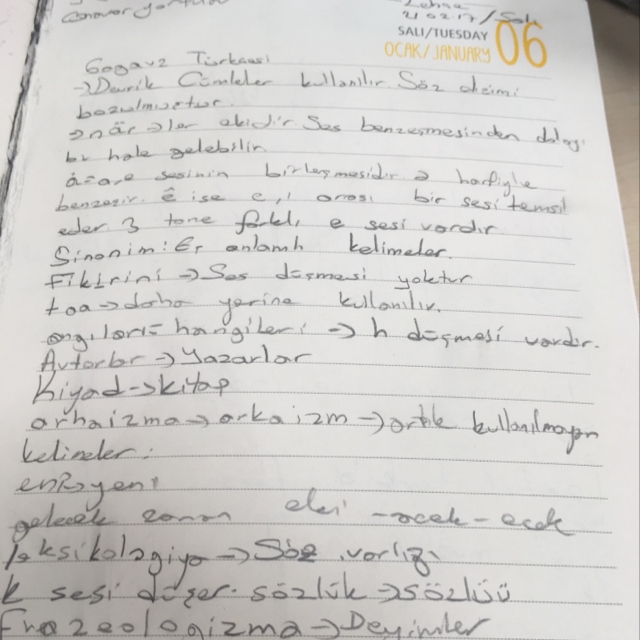 SALI/TUESDAY
OCAK/JANUARY 06
Gagavuz Türkçesi
→Devrik Cümleler kullanılır. Söz dizimi
bozulmuştur.
ənär →lar ekidir Ses benzeşmesinden dolayı
bu hale gelebilir.
ä=a ve e sesinin birleşmesidir ə harfiyle
benzeşir. ê ise e, i arası bir sesi temsil
eder 3 tane farklı e sesi vardır
Sinonim: Eş anlamlı kelimeler.
Fikirini → Ses düşmesi yoktur
taa → daha yerine kullanılır.
angıları = hangileri → h düşmesi vardır.
Avtorlar → Yazarlar
Kiyad → kitap
arhaizma → arkaizm → artık kullanılmayan
kelimeler.
gelecek zaman eki -acak -ecek
leksikologiya → Söz varlığı
k sesi düşer. sözlük → sözlüü
Frazeologizma → Deyimler